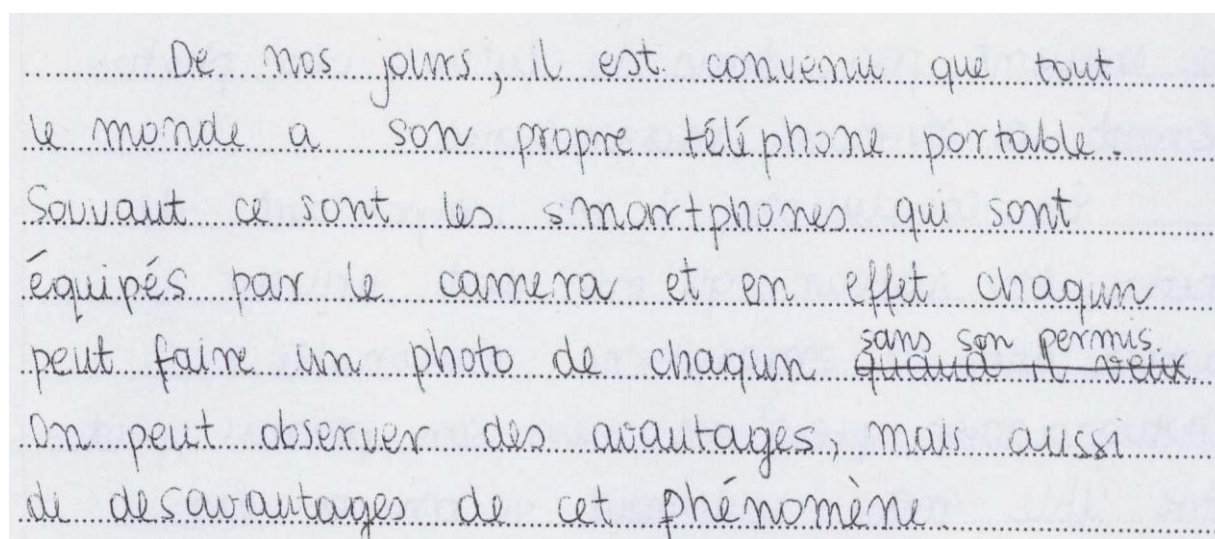 De nos jours, il est convenu que tout
le monde a son propre téléphone portable.
Souvaut ce sont les smartphones qui sont
équipés par le camera et en effet chaqun
peut faire un photo de chaqun sans son permis.
quand il veux
On peut observer des avantages, mais aussi
de desavantages de cet phénomène.